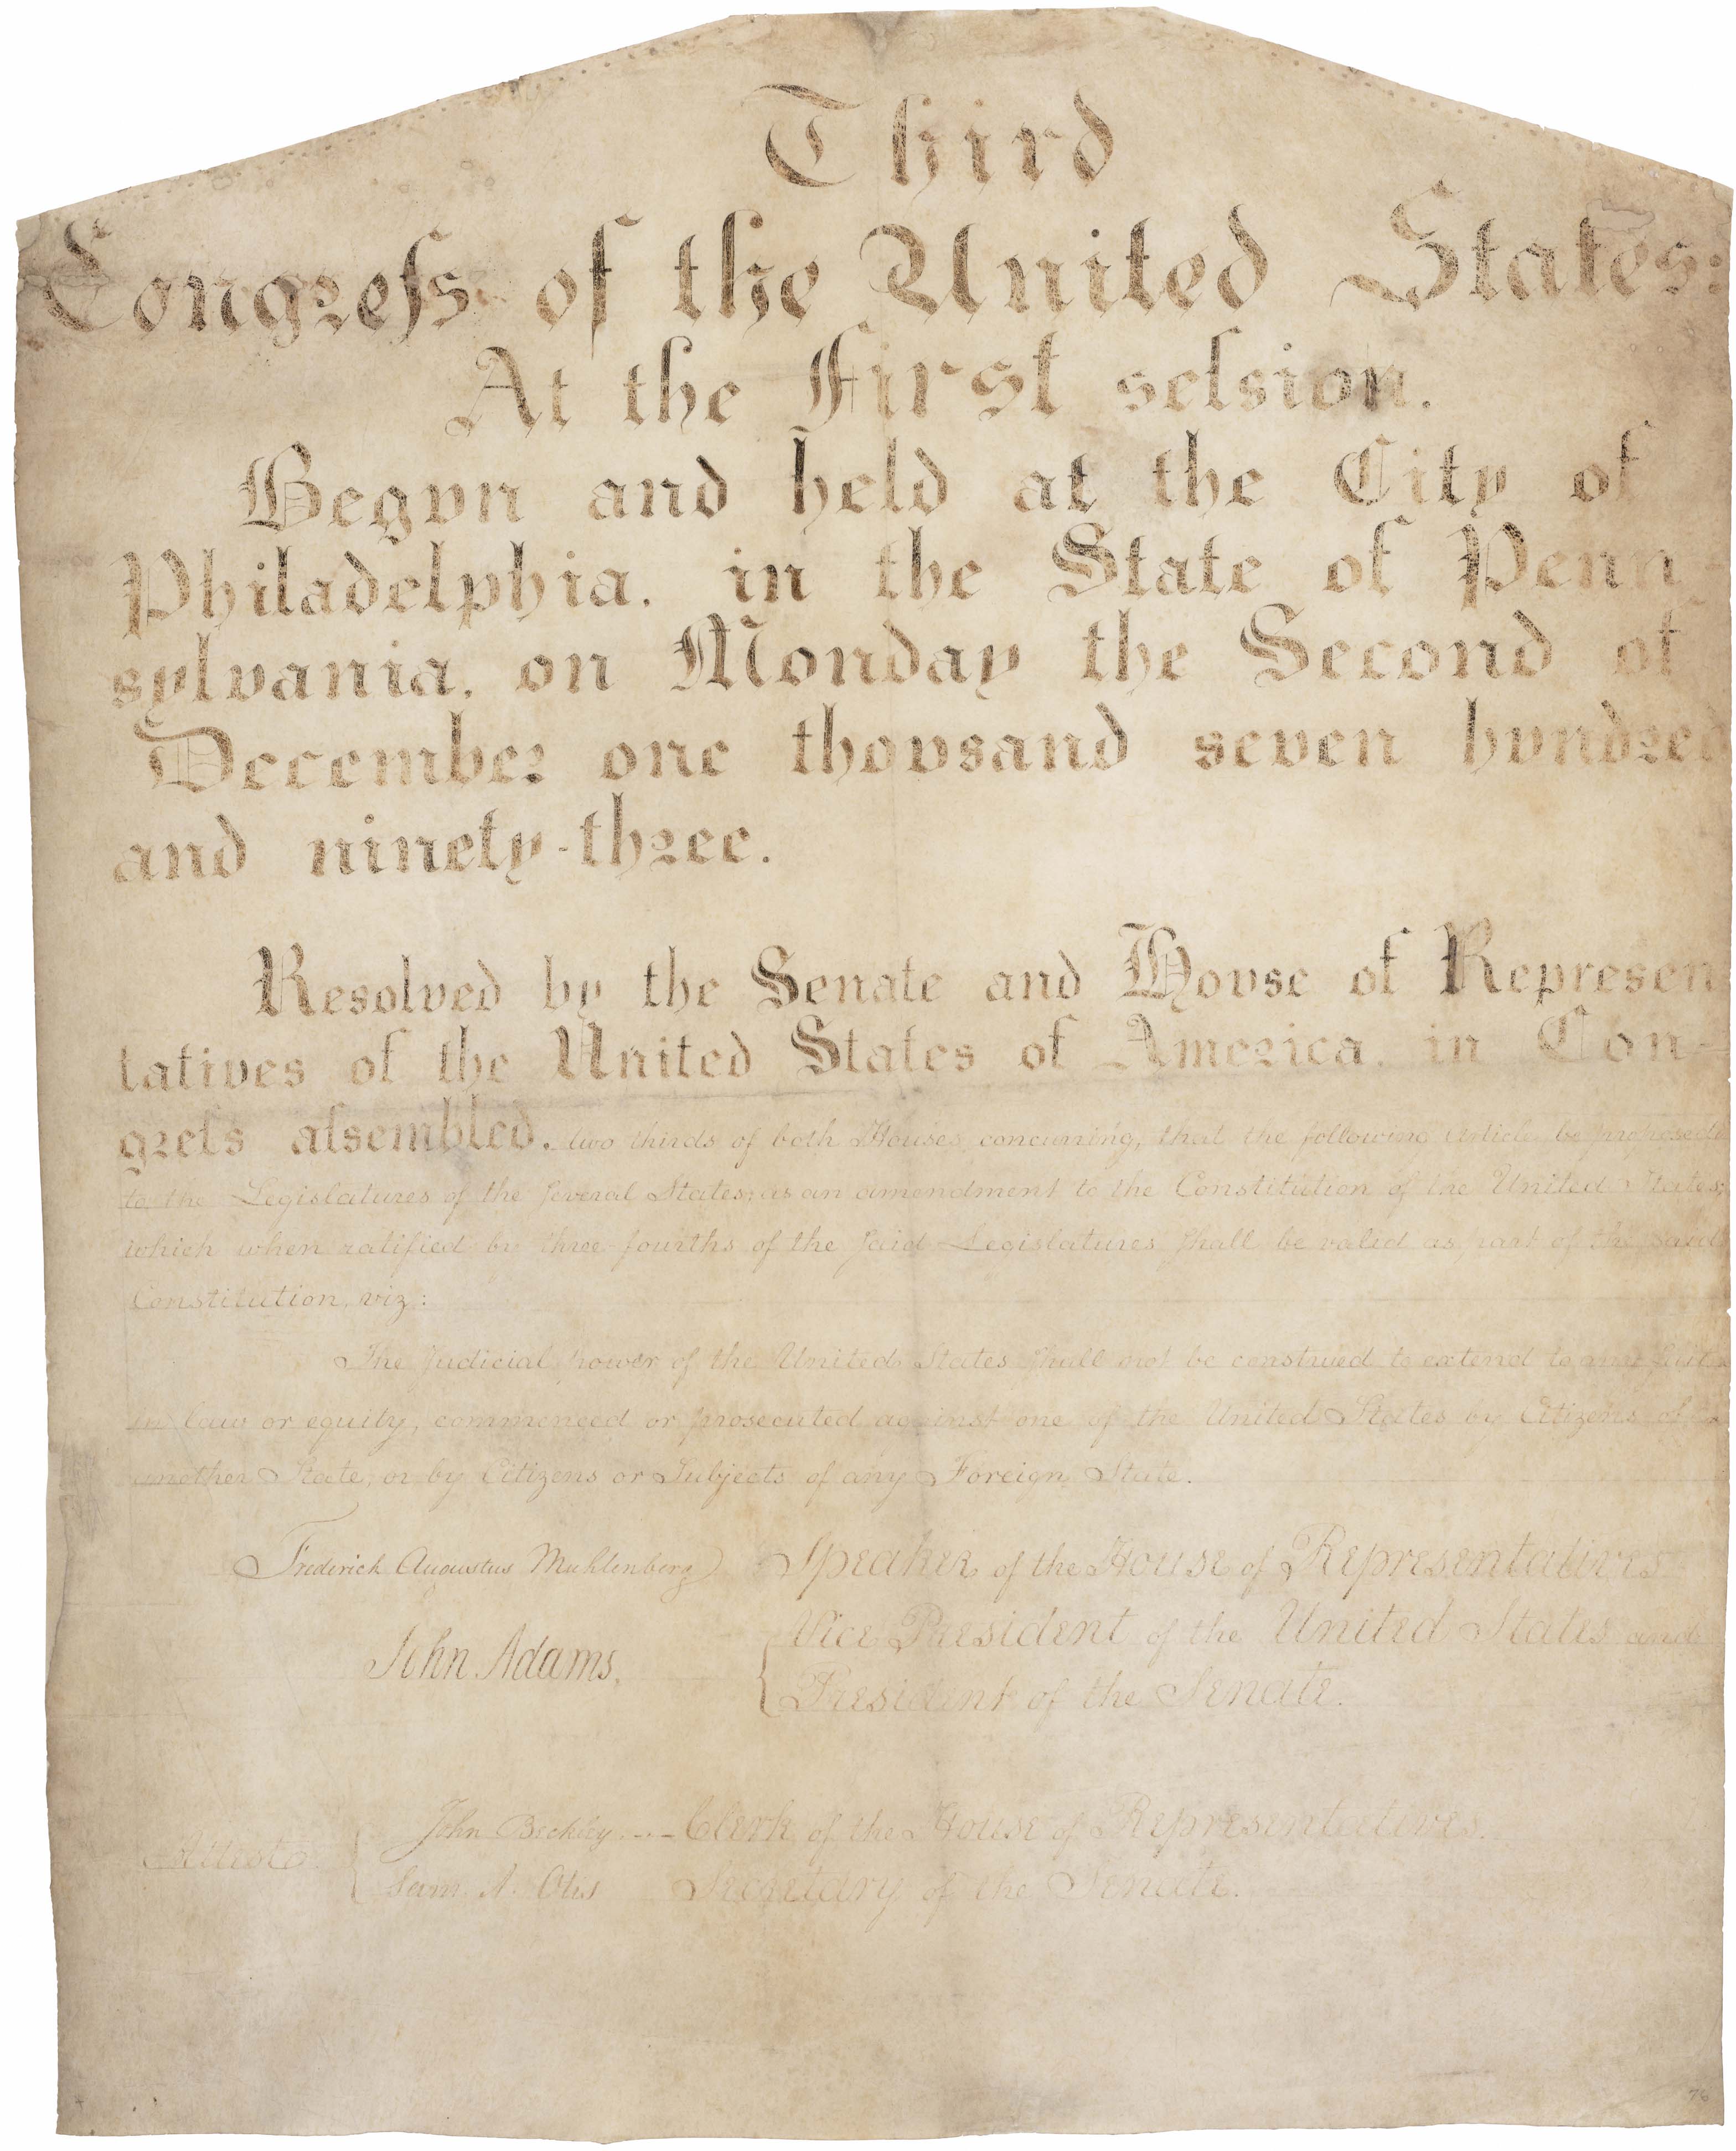 Third
Congreſs of the United States:
At the First seſsion.
Begvn and held at the City of
Philadelphia, in the State of Penn-
sylvania, on Monday the Second of
December one thovsand seven hvndred
and ninety-three.
Resolved by the Senate and Hovse of Represen
tatives of the United States of America, in Con-
greſs aſsembled, two thirds of both Houses concurring, that the following Article be proposed
to the Legislatures of the ſeveral States, as an amendment to the Constitution of the United States;
which when ratified by three fourths of the ſaid Legislatures ſhall be valid as part of the said
Constitution, viz:
The Judicial power of the United States ſhall not be construed to extend to any ſuit
in law or equity, commenced or prosecuted against one of the United States by Citizens of
another State, or by Citizens or Subjects of any Foreign State.
Frederick Augustus Muhlenberg Speaker of the House of Representatives
John Adams, Vice President of the United States and
President of the Senate.
Attest John Beckley --- Clerk of the House of Representatives.
Sam. A. Otis Secretary of the Senate.
76